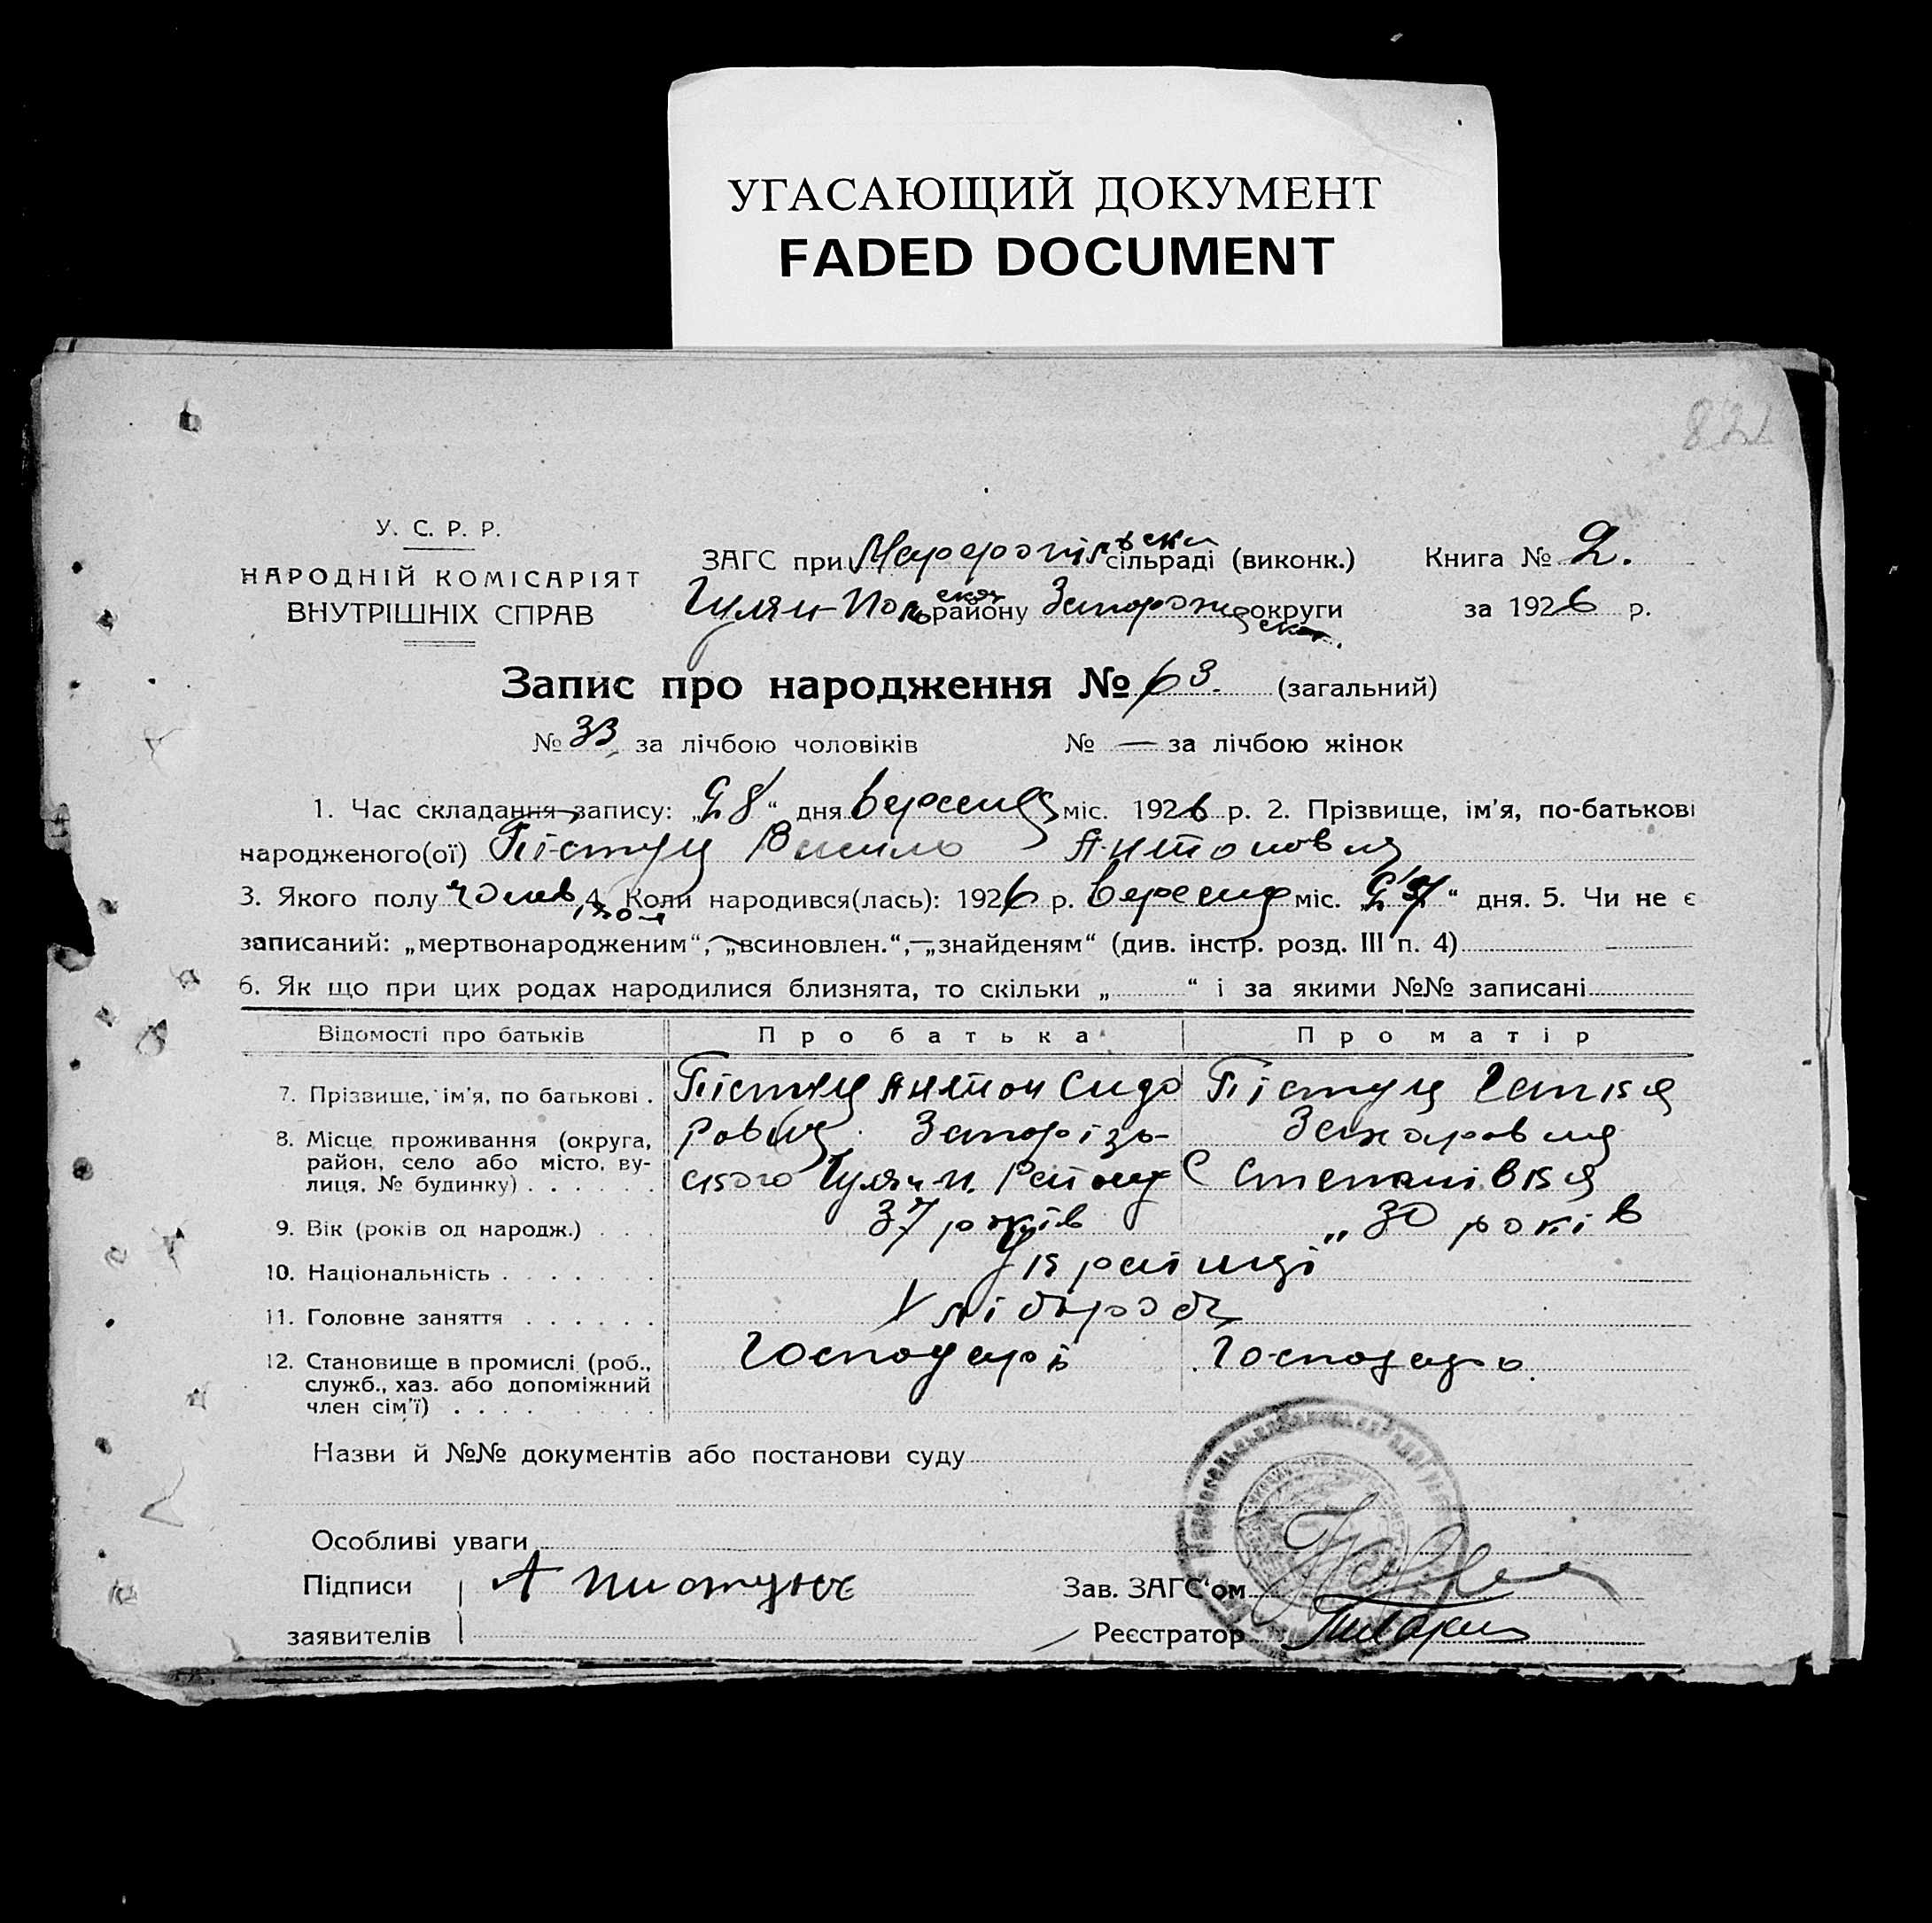 УГАСАЮЩИЙ ДОКУМЕНТ
FADED DOCUMENT
82
У. С. Р. Р.
НАРОДНІЙ КОМІСАРІЯТ
ВНУТРІШНІХ СПРАВ
ЗАГС при сільраді (виконк.) Книга № 2.
Гуляй-Польск району Запорожск округи за 1926 р.
Запис про народження № 63. (загальний)
№ 33 за лічбою чоловіків № — за лічбою жінок
1. Час складання запису: „28“ дня вересня міс. 1926 р. 2. Прізвище, ім'я, по-батькові
народженого(ої) Пістун Василь Антонович
3. Якого полу 4. Коли народився(лась): 1926 р. вересня міс. „27“ дня. 5. Чи не є
записаний: „мертвонародженим“, „всиновлен.“, „знайденям“ (див. інстр. розд. III п. 4)
6. Як що при цих родах народилися близнята, то скільки „ “ і за якими №№ записані
Відомості про батьків Про батька Про матір
7. Прізвище, ім'я, по батькові . Пістун Антон Сидо Пістун
8. Місце проживання (округа, рович Запорізь- Захаровна
район, село або місто, ву-
лиця, № будинку) . . . . . . ського Гуляй п. Району С Степанівка
9. Вік (років од народж.) . . . 37 років 30 років
10. Національність . . . . . . . Українці
11. Головне заняття . . . . . . Хлібороб
12. Становище в промислі (роб., Господарь Господарь
служб., хаз. або допоміжний
член сім'ї) . . . .
Назви й №№ документів або постанови суду
Особливі уваги
Підписи А Пистун
Зав. ЗАГС'ом
заявителів Реєстратор